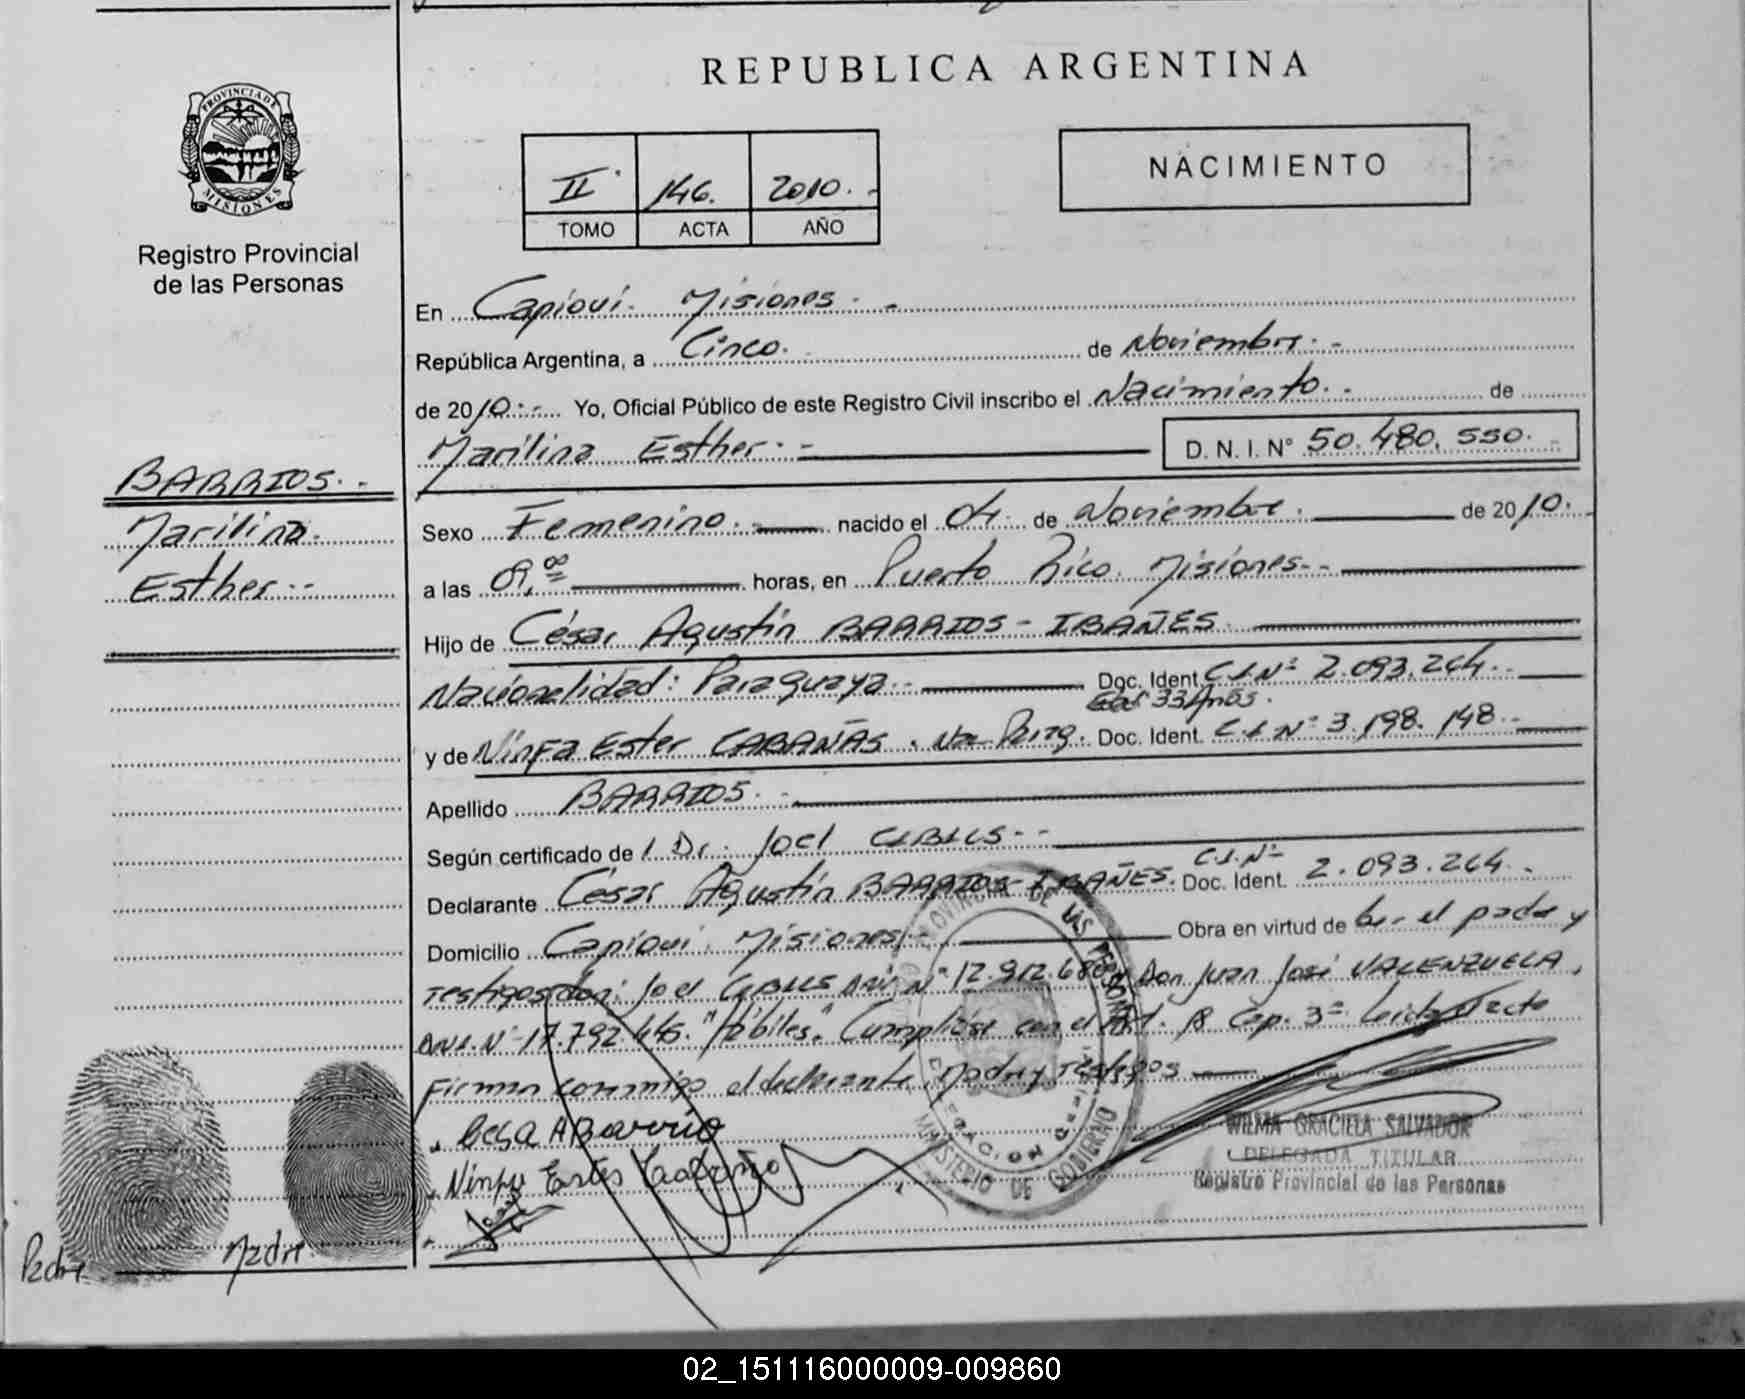 REPUBLICA ARGENTINA
PROVINCIA DE MISIONES
Registro Provincial
de las Personas
II. 146. 2010.-
TOMO ACTA AÑO
NACIMIENTO
En Capioví. Misiones.-
República Argentina, a Cinco. de Noviembre.-
de 2010.- Yo, Oficial Público de este Registro Civil inscribo el Nacimiento.- de
Marilina Esther.- D. N. I. N° 50.480.550.-
BARRIOS.-
Marilina.
Esther.-
Sexo Femenino.- nacido el 04 de Noviembre. de 2010.
a las 09,00 horas, en Puerto Rico. Misiones.-
Hijo de César Agustín BARRIOS - IBAÑES.
Nacionalidad: Paraguaya.- Doc. Ident. C.I.N° 2.093.264.-
33 Años.
y de Ninfa Ester CABAÑAS. Doc. Ident. C.I.N° 3.198.148.-
Apellido BARRIOS.-
Según certificado de Dr. Joel
Declarante César Agustín BARRIOS - IBAÑES. Doc. Ident. C.I.N° 2.093.264.-
Domicilio Capioví. Misiones.- Obra en virtud de Ser el padre y
Testigos don: Joel DNI N° 12.912.680 y Don Juan José VALENZUELA,
DNI. N° 17.792.445. "Hábiles". Cumpliose con el Art. Cap. 3° Leida
Firman conmigo el declarante, Madre y Testigos
WILMA GRACIELA SALVADOR
DELEGADA TITULAR
Registro Provincial de las Personas
PROVINCIAL DE LAS PERSONAS
MINISTERIO DE GOBIERNO
Padre Madre
02_151116000009-009860